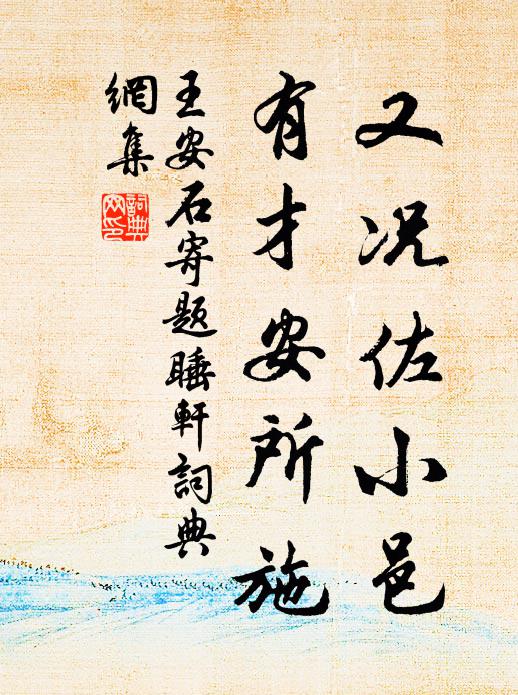 又况佐小邑
有才安所施
王安石寄题睡軒詞典
網集
詞典
网印